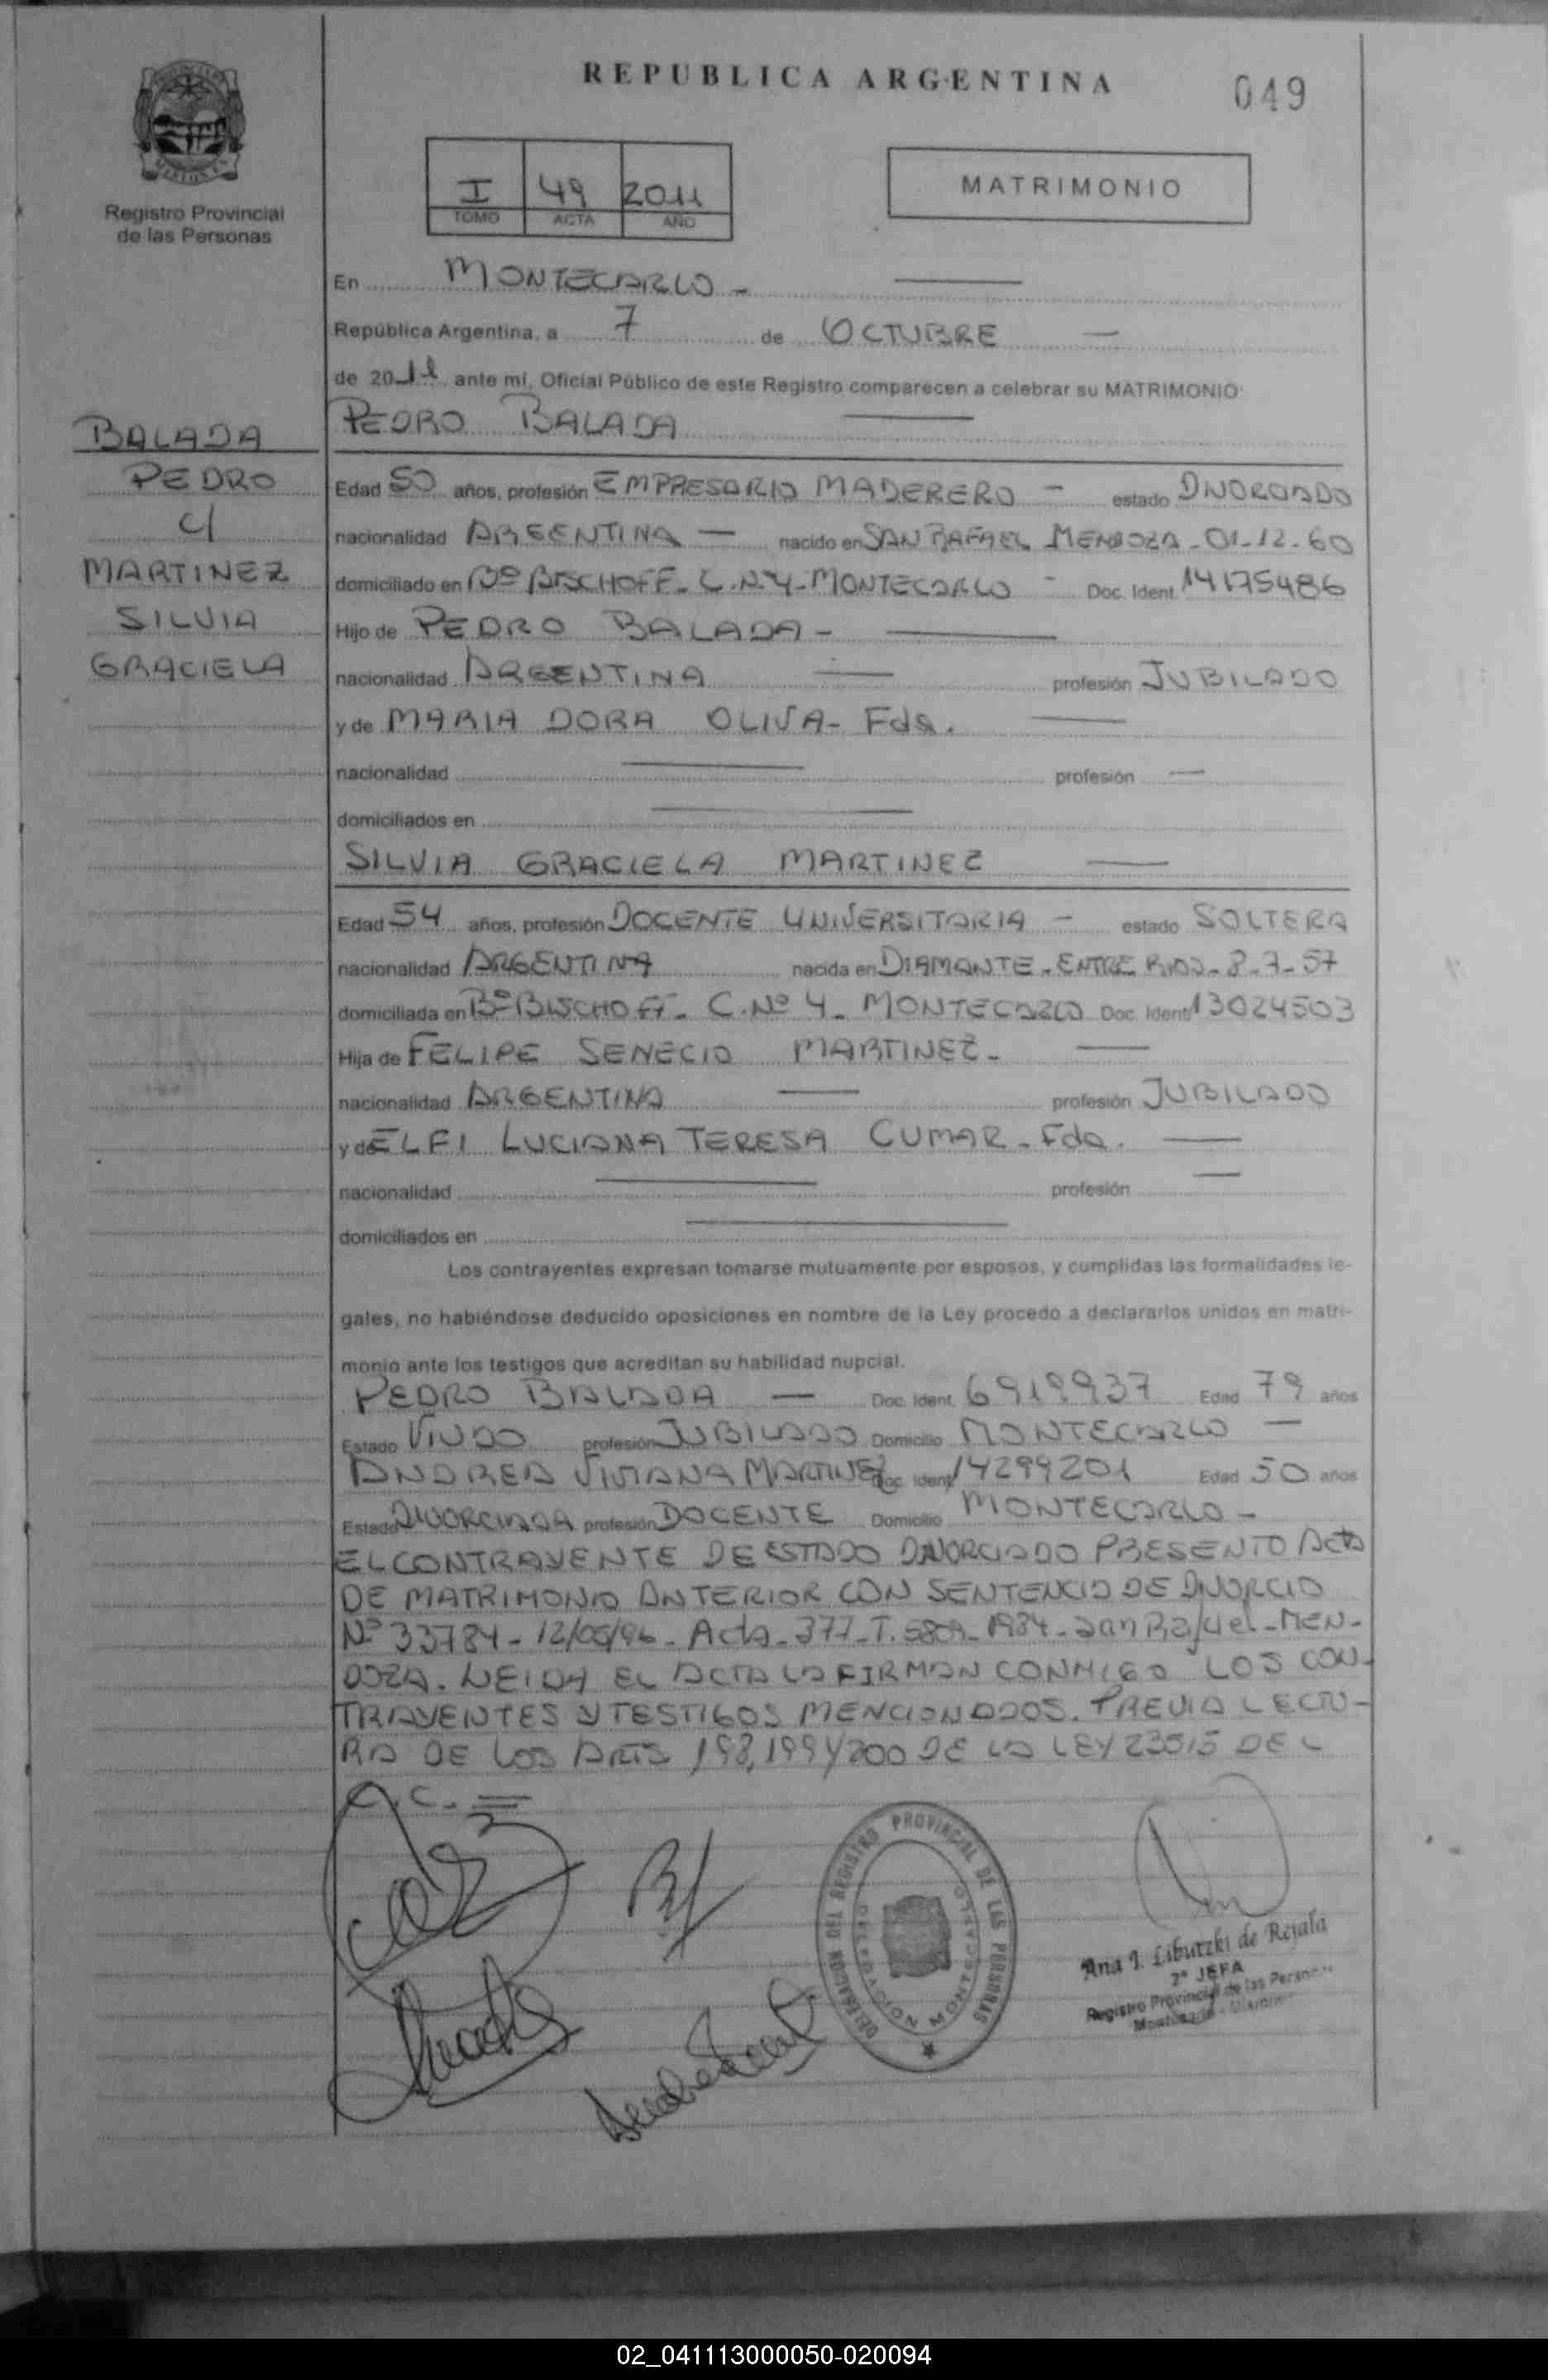 REPUBLICA ARGENTINA
049
Registro Provincial
de las Personas
I 49 2011
TOMO ACTA AÑO
MATRIMONIO
En MONTECARLO -
República Argentina, a 7 de OCTUBRE
de 2011 ante mí, Oficial Público de este Registro comparecen a celebrar su MATRIMONIO:
PEDRO BALADA
BALADA
PEDRO
c/
MARTINEZ
SILVIA
GRACIELA
Edad 50 años, profesión EMPRESARIO MADERERO - estado DIVORCIADO
nacionalidad ARGENTINA - nacido en SAN RAFAEL MENDOZA - 01-12-60
domiciliado en Bº BISCHOFF - C.Nº4 - MONTECARLO - Doc. Ident. 14175486
Hijo de PEDRO BALADA -
nacionalidad ARGENTINA profesión JUBILADO
y de MARIA DORA OLIVA - Fda.
nacionalidad profesión
domiciliados en
SILVIA GRACIELA MARTINEZ
Edad 54 años, profesión DOCENTE UNIVERSITARIA - estado SOLTERA
nacionalidad ARGENTINA nacida en DIAMANTE - ENTRE RIOS - 8-7-57
domiciliada en Bº BISCHOFF - C.Nº 4 - MONTECARLO Doc. Ident. 13024503
Hija de FELIPE SENECIO MARTINEZ -
nacionalidad ARGENTINA profesión JUBILADO
y de ELFI LUCIANA TERESA CUMAR - Fda.
nacionalidad profesión
domiciliados en
Los contrayentes expresan tomarse mutuamente por esposos, y cumplidas las formalidades le-
gales, no habiéndose deducido oposiciones en nombre de la Ley procedo a declararlos unidos en matri-
monio ante los testigos que acreditan su habilidad nupcial.
PEDRO BALADA - Doc. Ident. 6919937 Edad 79 años
Estado VIUDO profesión JUBILADO Domicilio MONTECARLO -
ANDREA VIVIANA MARTINEZ Doc. Ident. 14299201 Edad 50 años
Estado DIVORCIADA profesión DOCENTE Domicilio MONTECARLO -
EL CONTRAYENTE DE ESTADO DIVORCIADO PRESENTO Acta
DE MATRIMONIO ANTERIOR CON SENTENCIA DE DIVORCIO
Nº 33784 - 12/08/96 - Acta - 377 - T. 5809 - 1984 - San Rafael - MEN-
DOZA. LEIDA EL ACTA LA FIRMAN CONMIGO LOS CON-
TRAYENTES Y TESTIGOS MENCIONADOS. PREVIA LECTU-
RA DE LOS ARTS 198, 199 Y 200 DE LA LEY 23515 DEL
C.C. =
DELEGACION DEL REGISTRO PROVINCIAL DE LAS PERSONAS
DELEGACIÓN MONTECARLO
Ana I. Libutzki de Rejala
2ª JEFA
Registro Provincial de las Personas
02_041113000050-020094